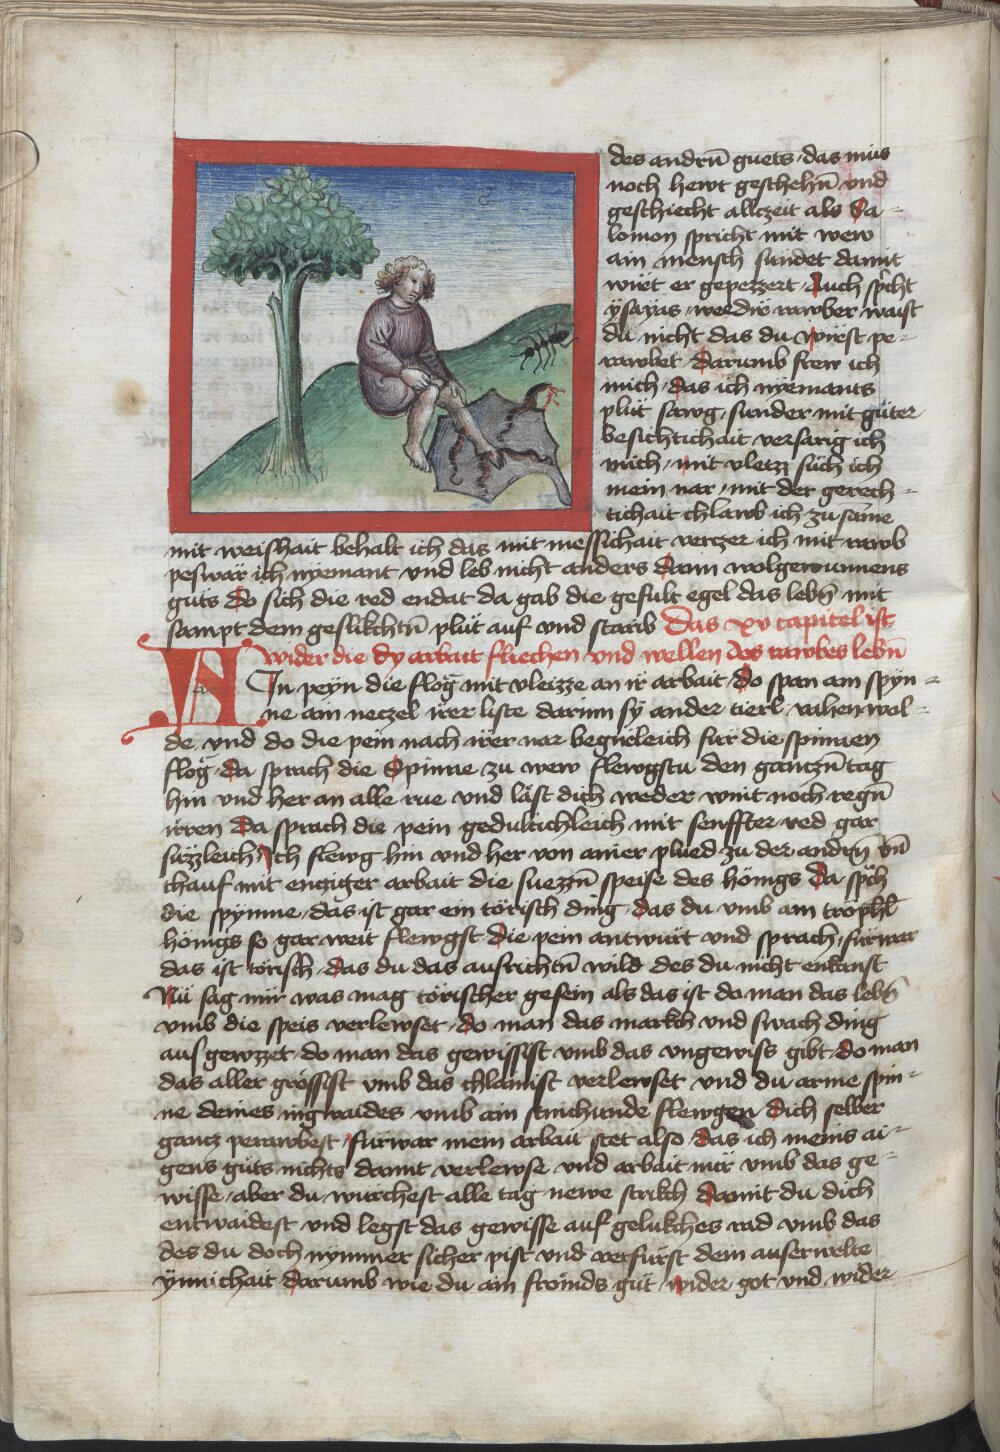 des andrn̄ guets · das mus
noch hewt geschehn̄ vnd
geschiecht allczeit als Sa-
lomon spricht mit wew
ain mensch sundet damit
wirt er gepezzert Auch spͥcht
ÿsayas · we dir rawber waist
du nicht das du wirst pe-
rawbet · darumb frew ich
mich · das ich nÿemants
plut sawg · sunder mit guter
besichtichait versarig ich
mich · mit vleizz such ich
mein nar · mit der gerech-
tichait chlawb ich zu same
mit weishait behalt ich das mit messichait verczer ich mit rawb
peswär ich nÿemant vnd leb nicht anders dann wolgewunnens
guts Do sich die red endat da gab die gefult egel das lebn̄ mit
sampt dem geslikchtn̄ plut auf vnd starib Das xv capitel ist
wider die dy arbait fliechen vnd wellen des rawbes lebn̄
AIn peyn die flog mit vleizze an ir arbait · do span am spyn-
ne ain neczel irer liste darum sy ander tierl vahen wol-
de · vnd do die pein nach irer nar begirleich fur die spinnen
flog · da sprach die Spinne zu wew flewgstu den ganczn̄ tag
hin vnd her an alle rue vnd läst dich weder wint noch regn̄
irren Da sprach die pein gedultichleich mit senffter red gar
suzzleich Ich flewg hin vnd her von ainer plued zu der andrn̄ vn̄
chauf mit encziger arbait die suezzn̄ speise des hönigs Da spͥch
die spynne · das ist gar ein törisch ding · das du vmb ain trophl̄
hönigs so gar weit flewgst · die pein antwurt vnd sprach · furwar
das ist törisch · das du das ausrichtn̄ wild des du nicht enkanst
Nu sag mir was mag törischer gesein als das ist do man das lebn̄
vmb die speis verlewset · do man das markch vnd swach ding
aus gewzzet · do man das gewissist vmb das vngewiss gibt · do man
das aller grössist vmb das chlainist verlewset vnd du arme spin-
ne deines ingwaides vmb ain stinchunde flewgen dich selber
gancz perawbest · furwar mein arbait stet also das ich meins ai-
gens guts nichts damit verlewse vnd arbait mir vmb das ge-
wisse · aber du wurchest alle tag newe strikch damit du dich
entwaidest vnd legst das gewisse auf gelukches rad vmb das
des du doch nymmer sicher pist vnd verfurst dem auserwelte
ÿnnichait darumb wie du ain fromds gut wider got vnd wider